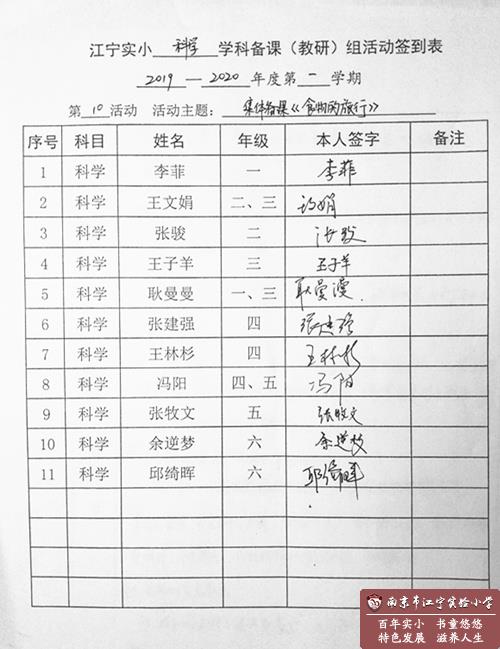 江宁实小 科学 学科备课（教研）组活动签到表
2019 — 2020 年度第 一 学期
第 10 活动 活动主题： 集体备课《食物的旅行》
序号 科目 姓名 年级 本人签字 备注
1 科学 李菲 一 李菲
2 科学 王文娟 二、三
3 科学 张骏 二 张骏
4 科学 王子羊 三 王子羊
5 科学 耿曼曼 一、三 耿曼曼
6 科学 张建强 四 张建强
7 科学 王林杉 四 王林杉
8 科学 冯阳 四、五 冯阳
9 科学 张牧文 五 张牧文
10 科学 余逆梦 六 余逆梦
11 科学 邱绮晖 六 邱绮晖
南京市江宁实验小学
百年实小 书童悠悠
特色发展 滋养人生